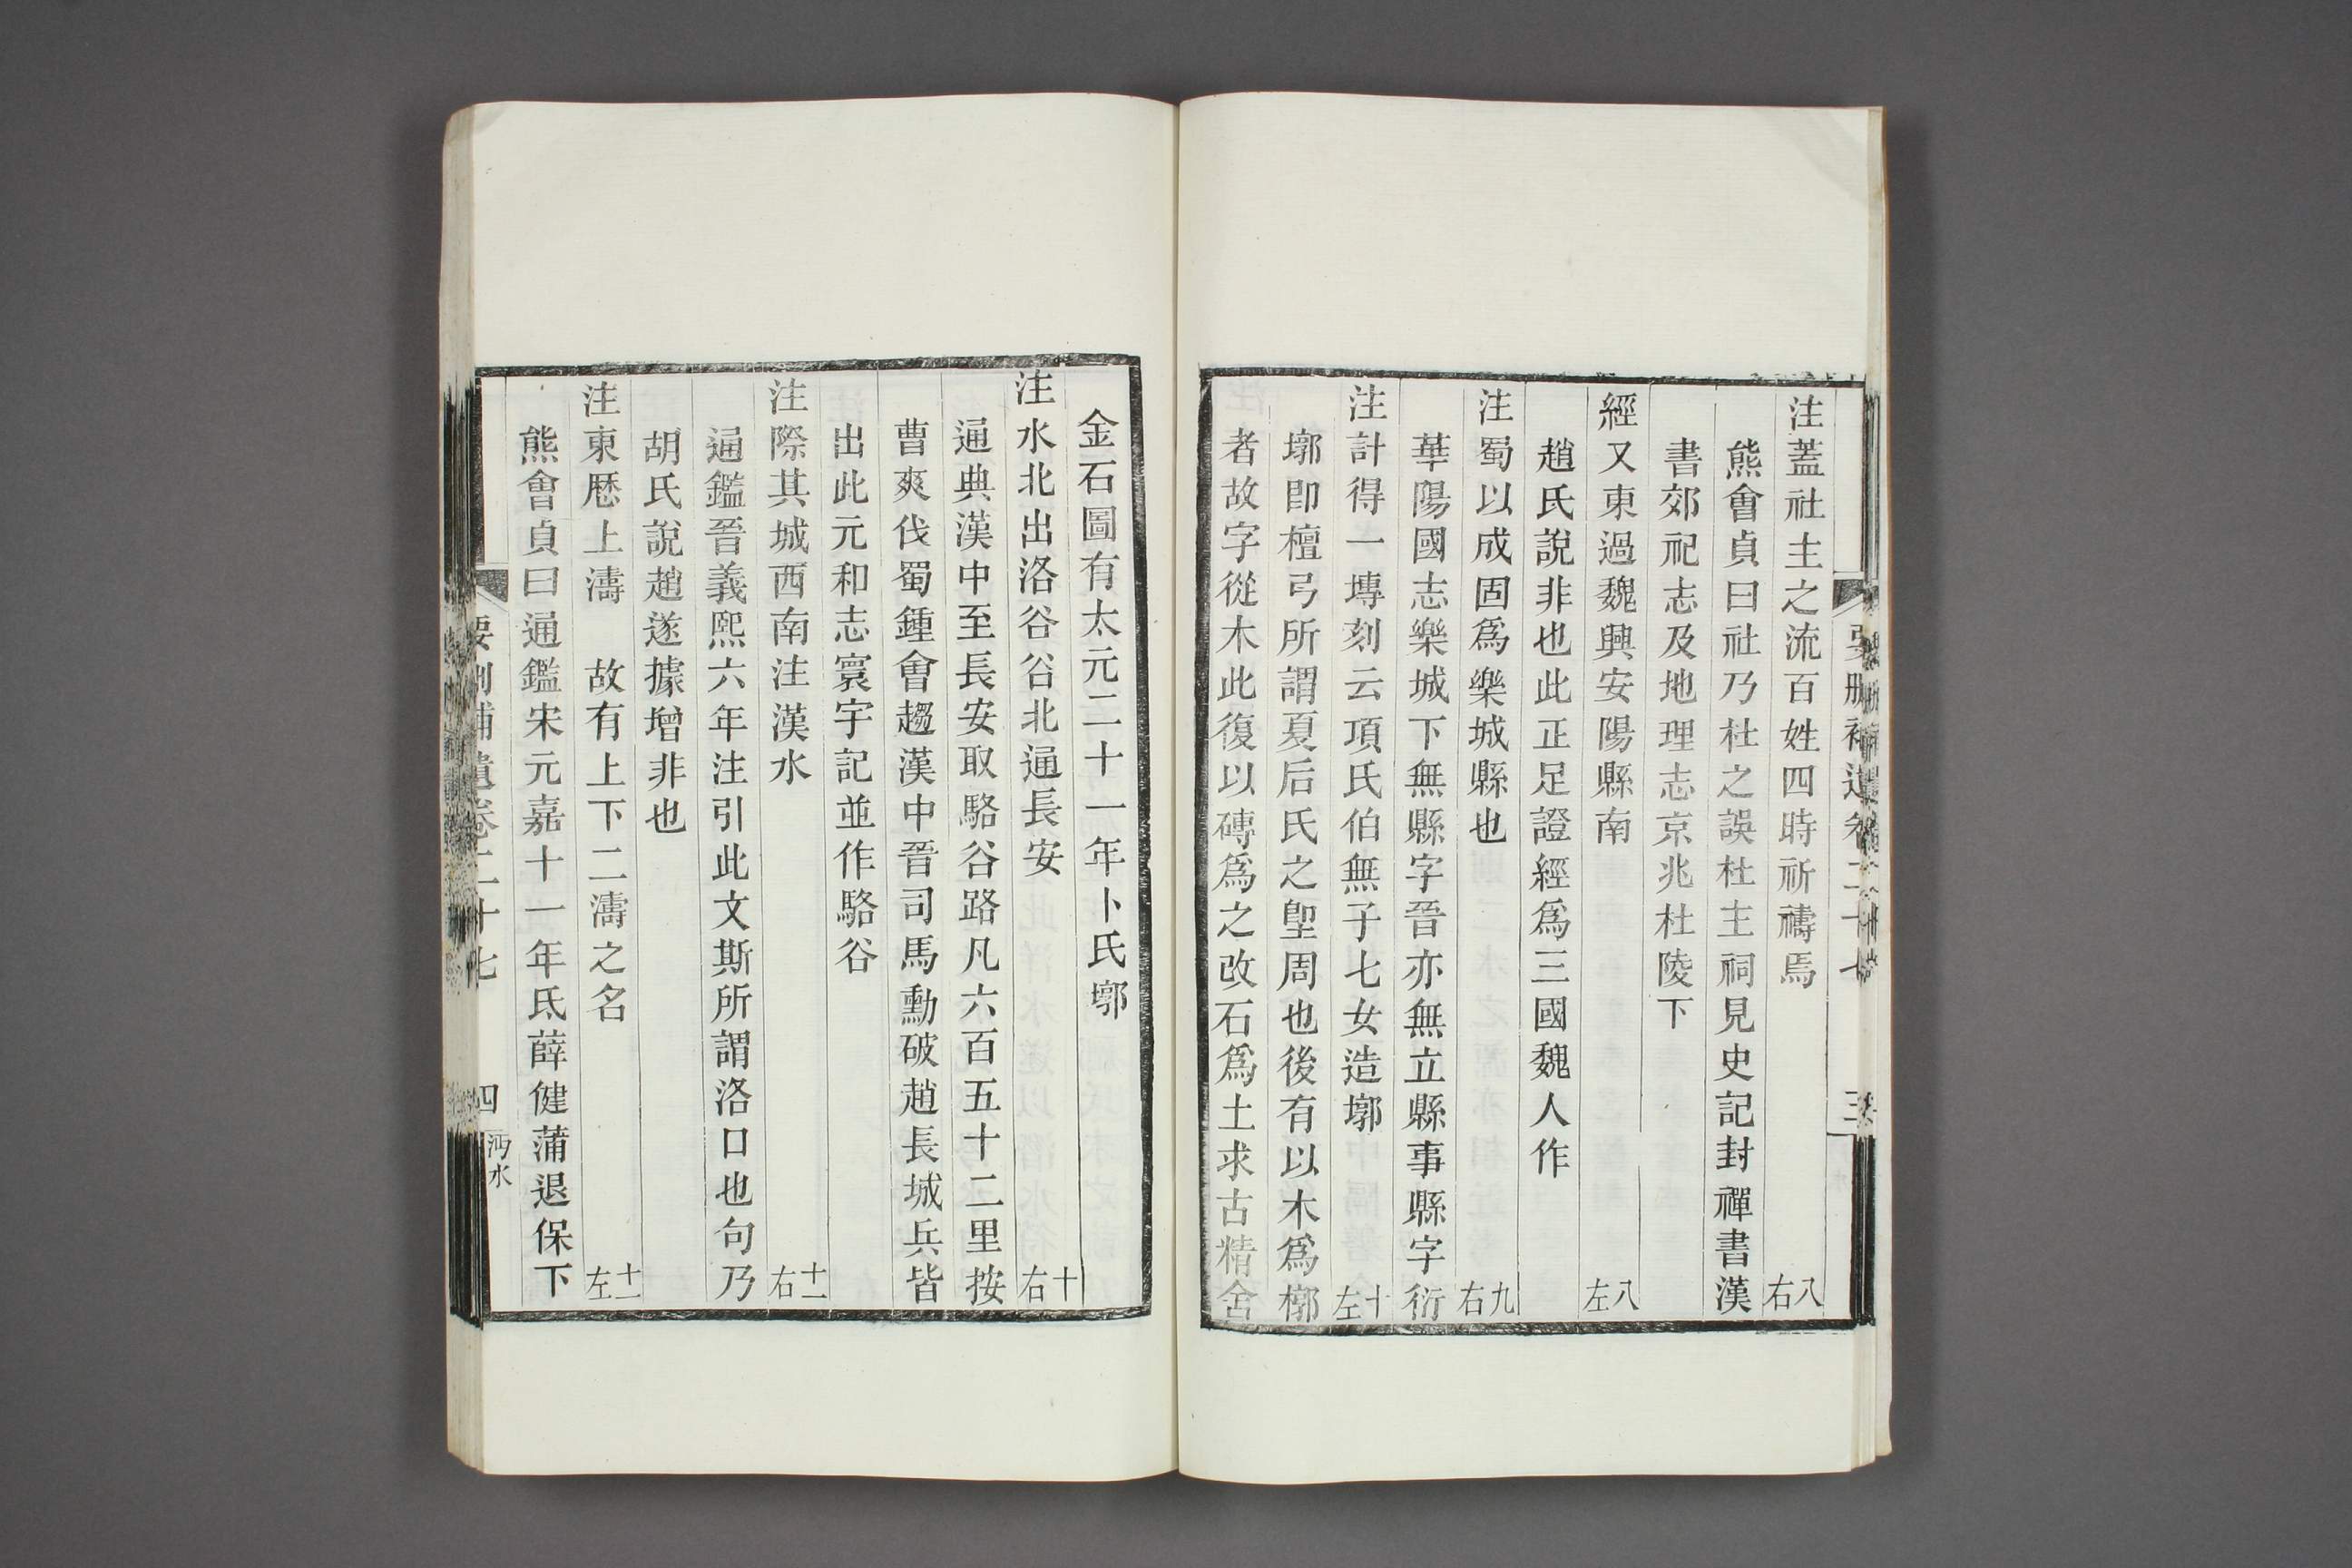 注蓋社主之流百姓四時祈禱焉 八右
熊會貞曰社乃杜之誤杜主祠見史記封禪書漢
書郊祀志及地理志京兆杜陵下
經又東過魏興安陽縣南 八左
趙氏說非也此正足證經爲三國魏人作
注蜀以成固爲樂城縣也 九右
華陽國志樂城下無縣字晉亦無立縣事縣字衍
注計得一塼刻云項氏伯無子七女造墎 十左
墎卽檀弓所謂夏后氏之堲周也後有以木爲槨
者故字從木此復以磚爲之改石爲土求古精舍
金石圖有太元二十一年卜氏墎
注水北出洛谷谷北通長安 十右
通典漢中至長安取駱谷路凡六百五十二里按
曹爽伐蜀鍾會趨漢中晉司馬勳破趙長城兵皆
出此元和志寰宇記並作駱谷
注際其城西南注漢水 十一右
通鑑晉義熙六年注引此文斯所謂洛口也句乃
胡氏說趙遂據增非也
注東歷上濤 故有上下二濤之名 十二左
熊會貞曰通鑑宋元嘉十一年氐薛健蒲退保下
要刪補遺卷二十七 四 沔水